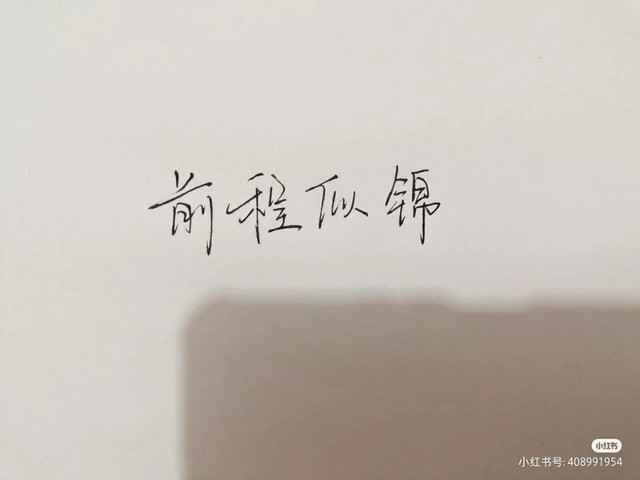 前程似锦
小红书
小红书号: 408991954